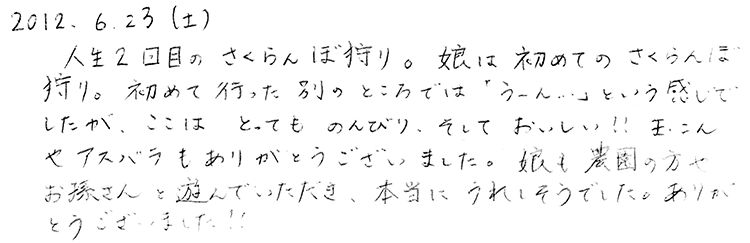 2012. 6.23 (土)
人生2回目の さくらんぼ狩り。娘は 初めての さくらんぼ
狩り。初めて 行った 別の ところでは「うーん…」という感じで
したが、ここは とっても のんびり、そして おいしい!! 玉こん
や アスパラも ありがとうございました。娘も 農園の方や
お孫さんと 遊んでいただき、本当に うれしそうでした。ありが
とうございました!!